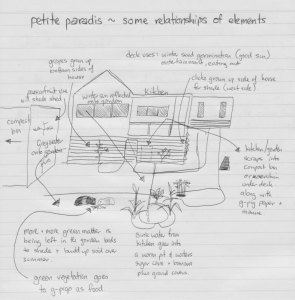 petite paradis ~ some relationships of elements
deck uses: winter seed germination (good sun)
entertainment, eating out
grapes grown up
bottom sides of
house
chokos grown up side of house
for shade (west side)
winter sun reflected
into garden
Kitchen
passionfruit vine
will shade shed
compost
bin
Greywater
onto garden
kitchen/garden
scraps into
compost bin
or
under deck
along with
g-pig paper +
manure
more + more green matter is
being left in the garden beds
to shade + build up soil over
summer.
sink water from
kitchen goes into
a worm pit & waters
sugar cane + bananas
plus ground covers.
green vegetation goes
to g-pigs as food